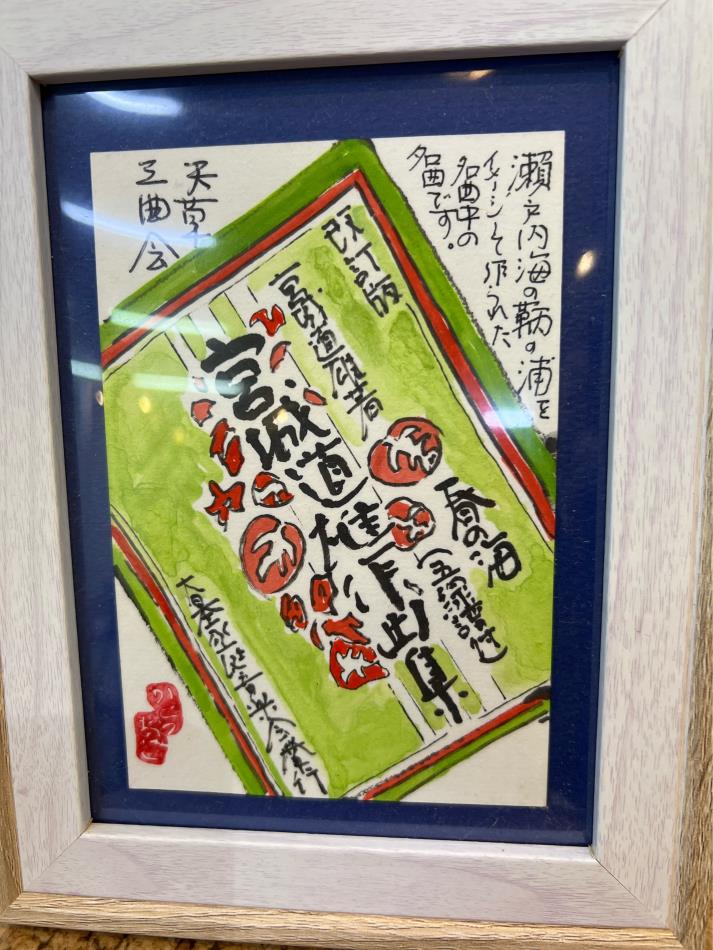 瀬戸内海の鞆の浦を
イメージして作られた
名曲中の
名曲です。
天草
三曲会
改訂版
宮城道雄著
宮城道雄小曲集
春の海
(五線譜付)
大日本家庭音楽会発行